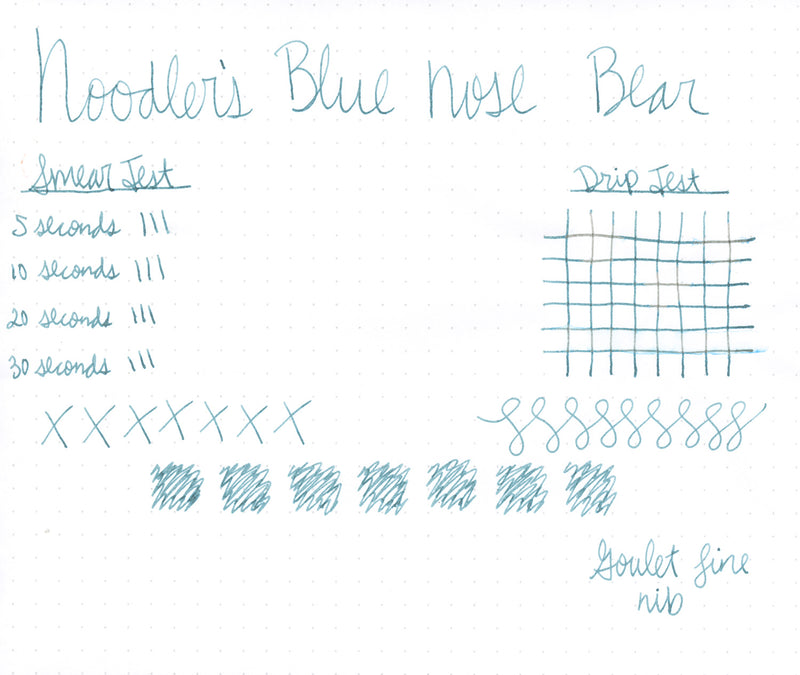 Noodler's Blue Nose Bear
Smear Test
Drip Test
5 seconds
10 seconds
20 seconds
30 seconds
X X X X X X X
Goulet fine
nib